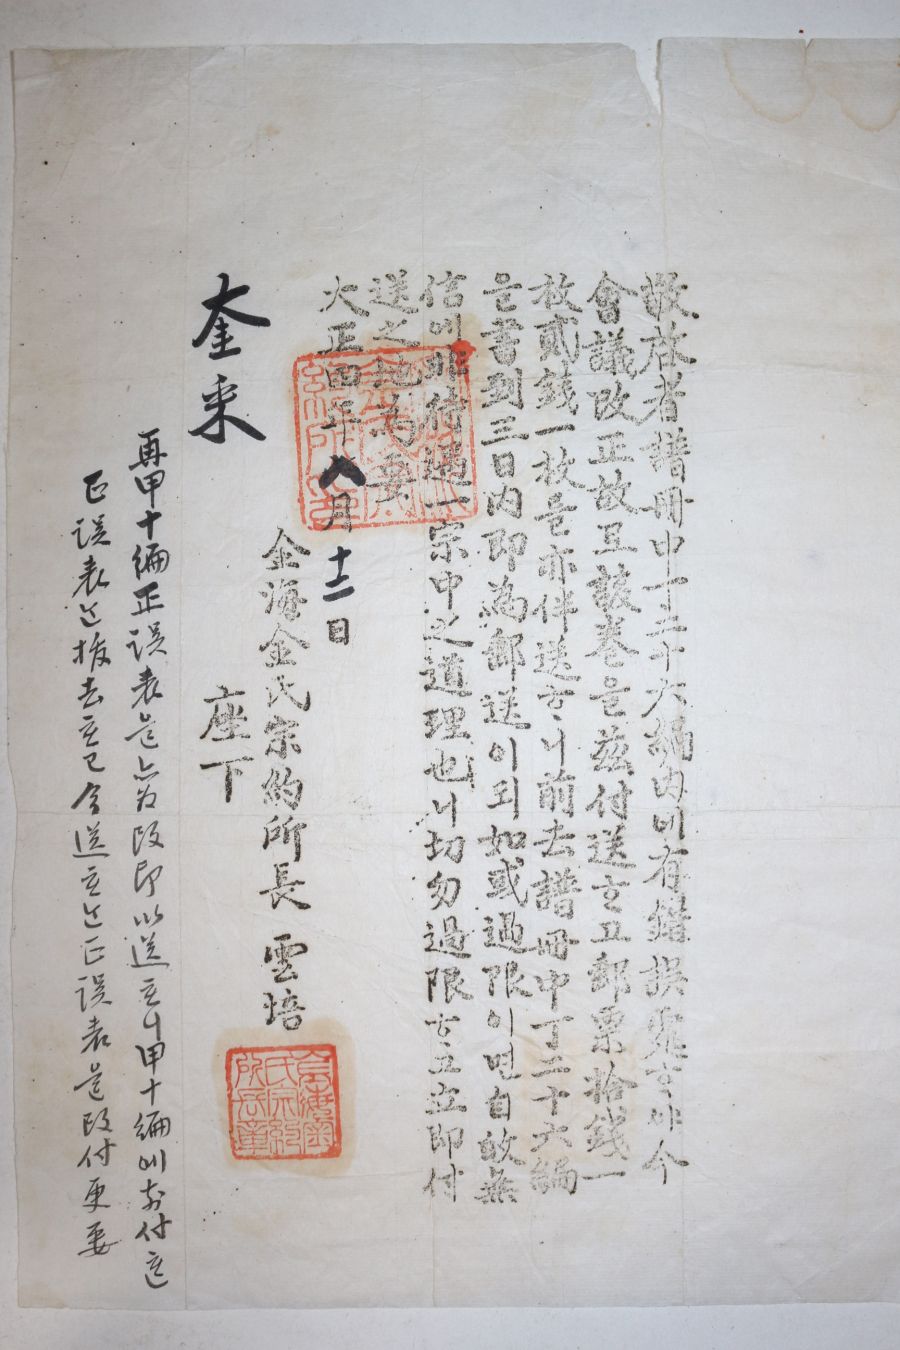 敬啓者譜冊中丁二十六編內에有錯誤處하야今
會議改正故로該卷을玆付送하고郵票拾錢一
枚貳錢一枚을亦伴送하니前去譜冊中丁二十六編
은書到三日內即為郵送이되如或過限이면自故無
信에非待遇一宗中之道理也니切勿過限하고立即付
送之地為要
大正四年八月十二日
金海金氏宗約所長 雲培
奎采 座下
再甲十編正誤表을亦為改印以送하니甲十編에付
正誤表는拔去하고今送하는正誤表을改付更要